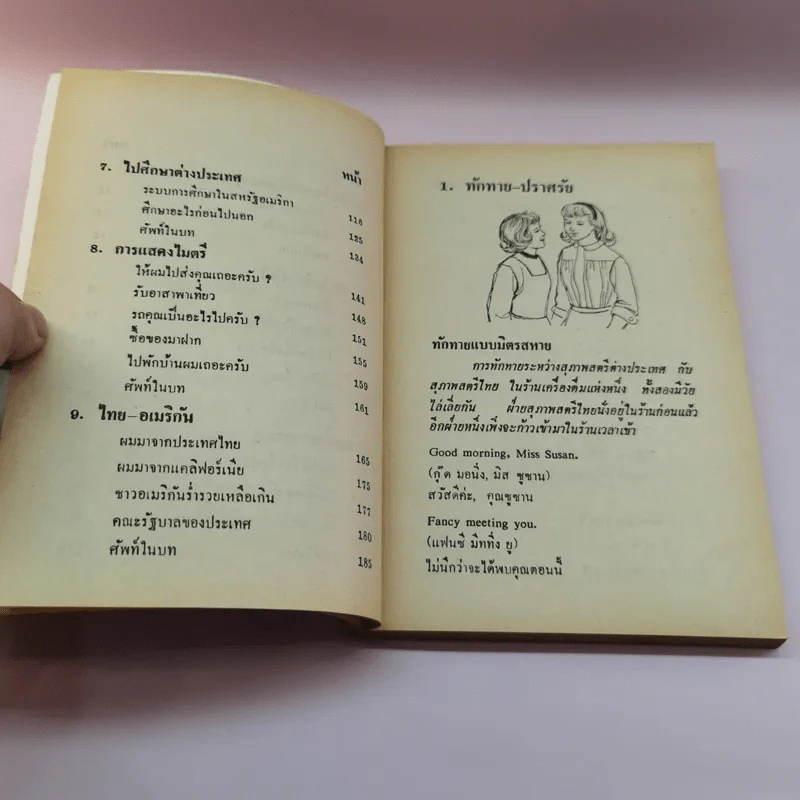 7. ไปศึกษาต่างประเทศ หน้า
ระบบการศึกษาในสหรัฐอเมริกา 116
ศึกษาอะไรก่อนไปนอก 125
ศัพท์ในบท 134
8. การแสดงไมตรี
ให้ผมไปส่งคุณเถอะครับ ? 141
รับอาสาพาเที่ยว 148
รถคุณเป็นอะไรไปครับ ? 151
ซื้อของมาฝาก 155
ไปพักบ้านผมเถอะครับ 159
ศัพท์ในบท 161
9. ไทย–อเมริกัน
ผมมาจากประเทศไทย 165
ผมมาจากแคลิฟอร์เนีย 175
ชาวอเมริกันร่ำรวยเหลือเกิน 177
คณะรัฐบาลของประเทศ 180
ศัพท์ในบท 185
1. ทักทาย–ปราศรัย
ทักทายแบบมิตรสหาย
การทักทายระหว่างสุภาพสตรีต่างประเทศ กับ
สุภาพสตรีไทย ในร้านเครื่องดื่มแห่งหนึ่ง ทั้งสองมีวัย
ไล่เลี่ยกัน ฝ่ายสุภาพสตรีไทยนั่งอยู่ในร้านก่อนแล้ว
อีกฝ่ายหนึ่งเพิ่งจะก้าวเข้ามาในร้านเวลาเช้า
Good morning, Miss Susan.
(กุ๊ด มอนิ่ง, มิส ซูซาน)
สวัสดีค่ะ, คุณซูซาน
Fancy meeting you.
(แฟนซี มีททิ่ง ยู)
ไม่นึกว่าจะได้พบคุณตอนนี้